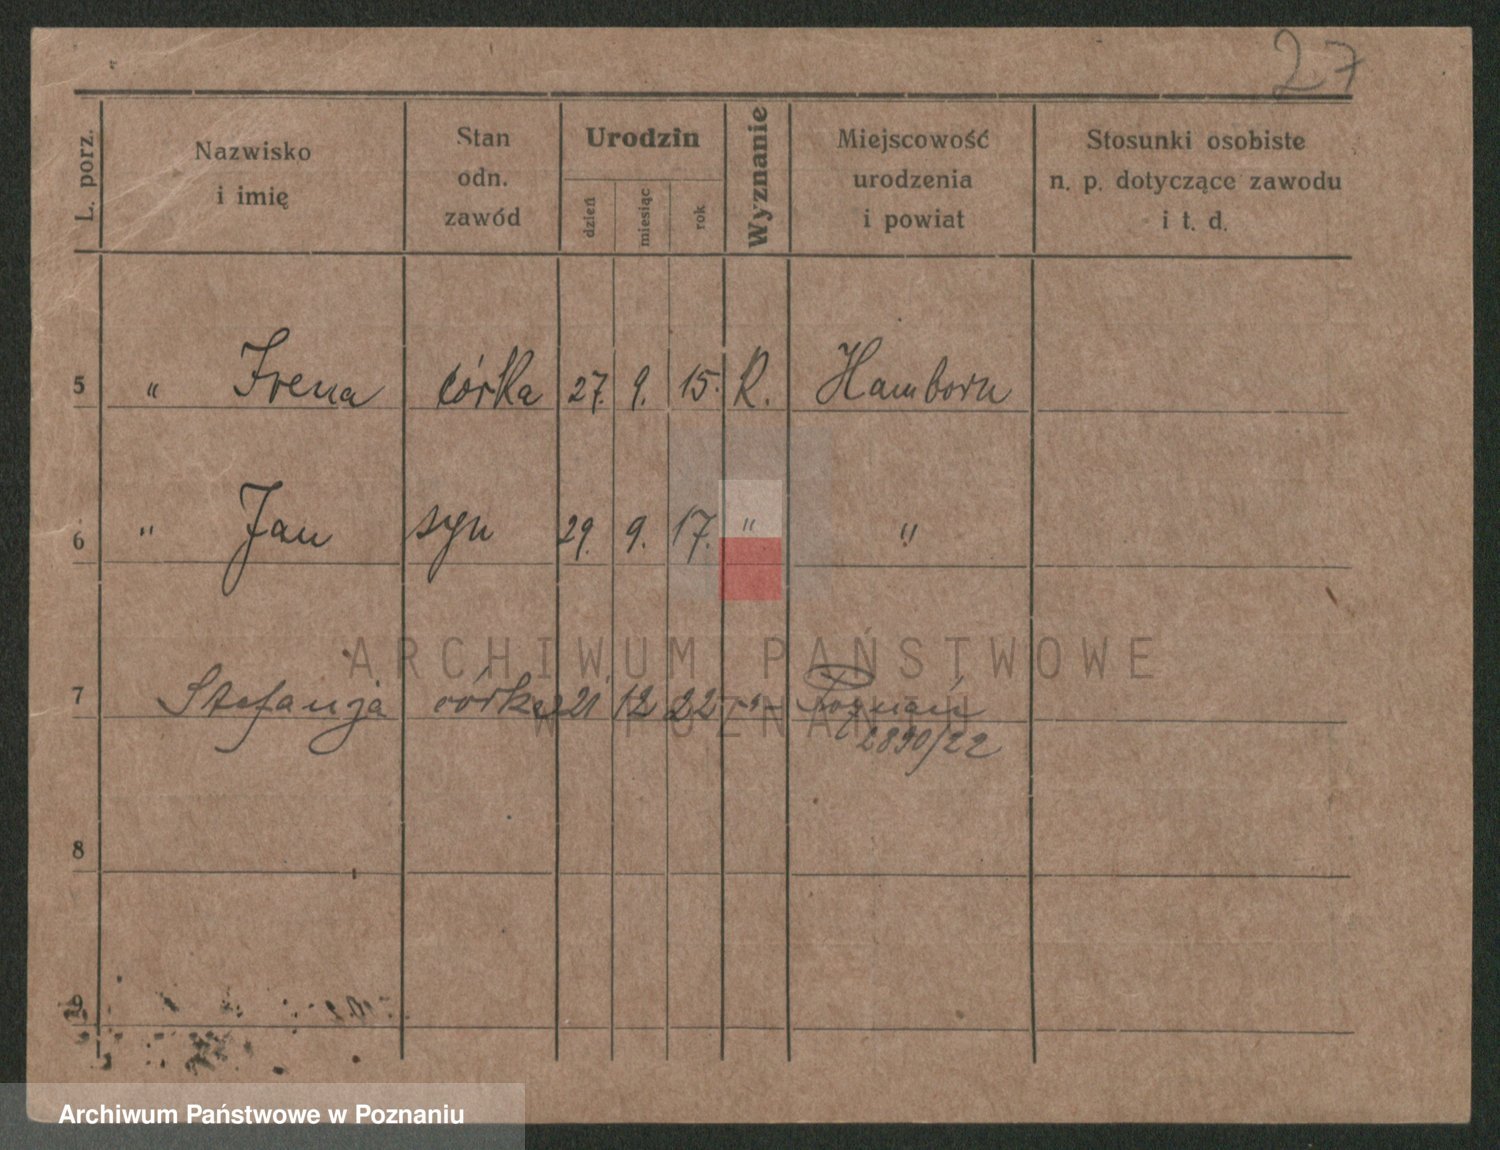 27
L. porz.
Nazwisko
i imię
Stan
odn.
zawód
Urodzin
dzień
miesiąc
rok
Wyznanie
Miejscowość
urodzenia
i powiat
Stosunki osobiste
n. p. dotyczące zawodu
i t. d.
5 " Irena córka 27. 9. 15. R. Hamborn
6 " Jan syn 29. 9. 17. " "
ARCHIWUM PAŃSTWOWE
W POZNANIU
7 Stefanja córka 21 12 22 -"- Poznań
2890/22
8
9
Archiwum Państwowe w Poznaniu